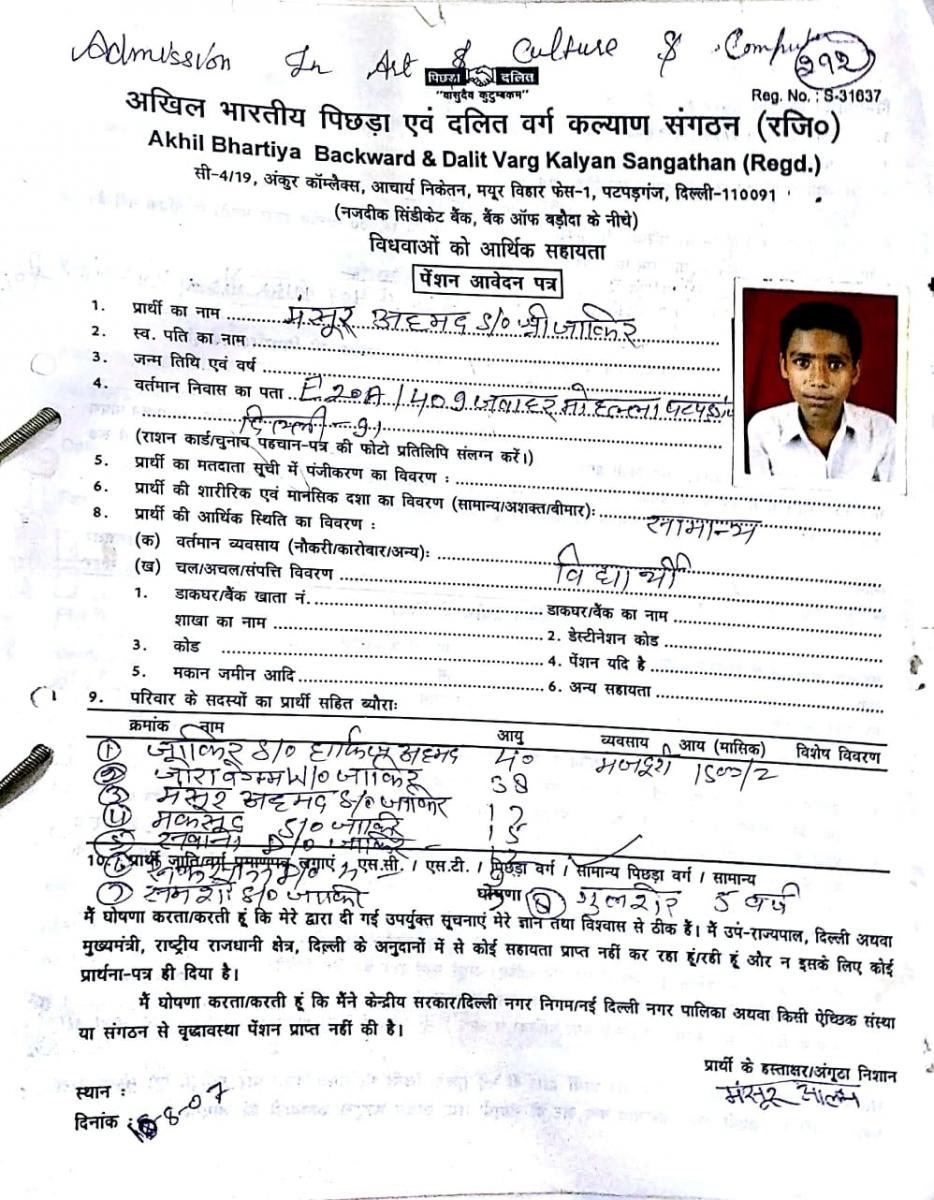 Admission In Art & Culture & Computer
२१२
पिछड़ा दलित
"वासुदैव कुटुम्बकम"
Reg. No. : S-31637
अखिल भारतीय पिछड़ा एवं दलित वर्ग कल्याण संगठन (रजि०)
Akhil Bhartiya Backward & Dalit Varg Kalyan Sangathan (Regd.)
सी-4/19, अंकुर कॉम्लैक्स, आचार्य निकेतन, मयूर विहार फेस-1, पटपड़गंज, दिल्ली-110091
(नजदीक सिंडीकेट बैंक, बैंक ऑफ बड़ौदा के नीचे)
विधवाओं को आर्थिक सहायता
पेंशन आवेदन पत्र
1. प्रार्थी का नाम मंसूर अहमद S/O श्री जाकिर
2. स्व. पति का नाम
3. जन्म तिथि एवं वर्ष
4. वर्तमान निवास का पता E 20A / 409 जवाहर मोहल्ला पटपड़गंज
दिल्ली - 91
(राशन कार्ड/चुनाव पहचान-पत्र की फोटो प्रतिलिपि संलग्न करें।)
5. प्रार्थी का मतदाता सूची में पंजीकरण का विवरण :
6. प्रार्थी की शारीरिक एवं मानसिक दशा का विवरण (सामान्य/अशक्त/बीमार): सामान्य
8. प्रार्थी की आर्थिक स्थिति का विवरण :
(क) वर्तमान व्यवसाय (नौकरी/कारोबार/अन्य): विद्यार्थी
(ख) चल/अचल/संपत्ति विवरण
1. डाकघर/बैंक खाता नं. डाकघर/बैंक का नाम
शाखा का नाम 2. डेस्टीनेशन कोड
3. कोड 4. पेंशन यदि है
5. मकान जमीन आदि 6. अन्य सहायता
9. परिवार के सदस्यों का प्रार्थी सहित ब्यौराः
क्रमांक नाम आयु व्यवसाय आय (मासिक) विशेष विवरण
① जाकिर S/O अहमद 40 मजदूरी 1500/2
② W/O जाकिर 38
③ मंसूर अहमद S/O जाकिर 17
④ मकसूद S/O जाकिर 15
⑤ D/O जाकिर
10. प्रार्थी जाति/वर्ग प्रमाणपत्र लगाएं एस.सी. / एस.टी. / पिछड़ा वर्ग / सामान्य पिछड़ा वर्ग / सामान्य
⑦ S/O जाकिर
घोषणा ⑧ गुलशेर 5 वर्ष
मैं घोषणा करता/करती हूं कि मेरे द्वारा दी गई उपर्युक्त सूचनाएं मेरे ज्ञान तथा विश्वास से ठीक हैं। मैं उप-राज्यपाल, दिल्ली अथवा
मुख्यमंत्री, राष्ट्रीय राजधानी क्षेत्र, दिल्ली के अनुदानों में से कोई सहायता प्राप्त नहीं कर रहा हूं/रही हूं और न इसके लिए कोई
प्रार्थना-पत्र ही दिया है।
मैं घोषणा करता/करती हूं कि मैंने केन्द्रीय सरकार/दिल्ली नगर निगम/नई दिल्ली नगर पालिका अथवा किसी ऐच्छिक संस्था
या संगठन से वृद्धावस्था पेंशन प्राप्त नहीं की है।
प्रार्थी के हस्ताक्षर/अंगूठा निशान
मंसूर आलम
स्थान :
दिनांक : 8-07